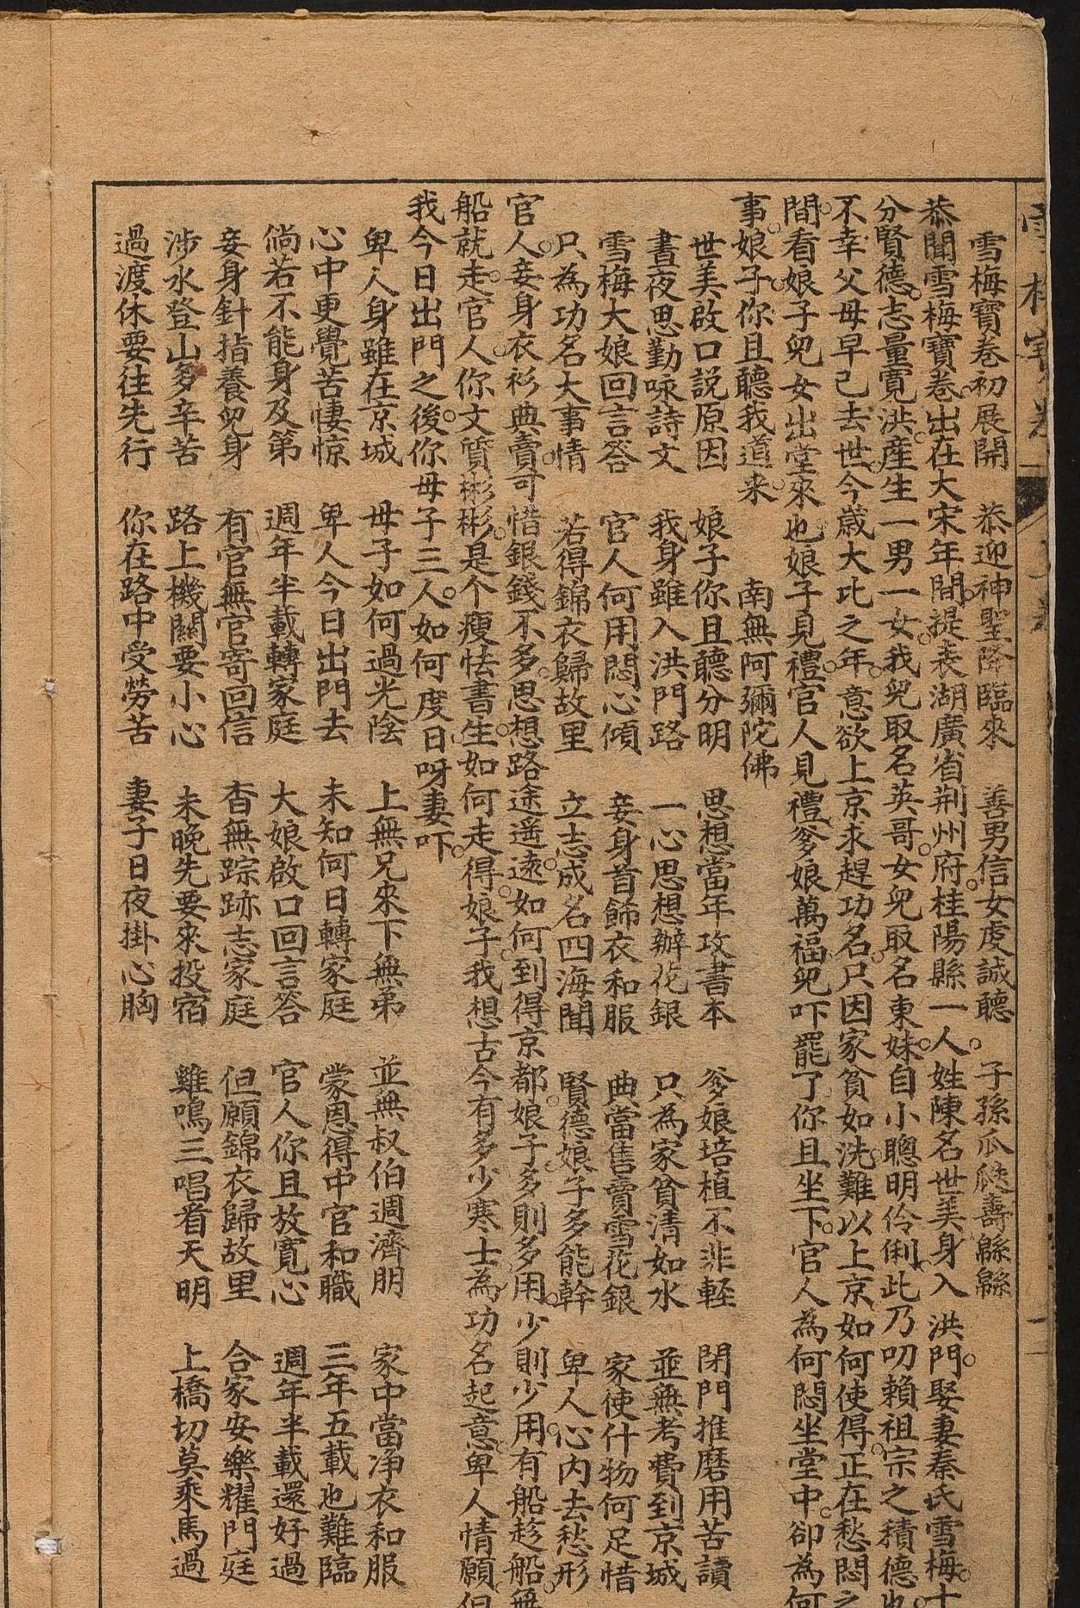 雪梅寶卷初展開　恭迎神聖降臨來　善男信女虔誠聽　子孫瓜瓞壽緜緜
恭聞雪梅寶卷。出在大宋年間。提表湖廣省荆州府。桂陽縣一人。姓陳名世美身入洪門。娶妻秦氏雪梅。十
分賢德。志量寬洪。產生一男一女。我兒取名英哥。女兒取名東妹。自小聰明伶俐。此乃叨賴祖宗之積德也。
不幸父母早已去世。今歲大比之年。意欲上京求趕功名。只因家貧如洗。難以上京。如何使得。正在愁悶之
間。看娘子兒女出堂來也。娘子見禮。官人見禮。爹娘萬福。兒吓罷了。你且坐下。官人為何悶坐堂中。卻為何
事。娘子。你且聽我道來。　南無阿彌陀佛
世美啟口說原因　娘子你且聽分明　思想當年攻書本　爹娘培植不非輕　閉門推磨用苦讀
晝夜思勤咏詩文　我身雖入洪門路　一心思想辦花銀　只為家貧清如水　並無考費到京城
雪梅大娘回言答　官人何用悶心傾　妾身首飾衣和服　典當售賣雪花銀　家使什物何足惜
只為功名大事情　若得錦衣歸故里　立志成名四海聞　賢德娘子多能幹　卑人心內去愁形
官人。妾身衣衫典賣。可惜銀錢不多。思想路途遥遠。如何到得京都。娘子。多則多用。少則少用。有船趁船。無
船就走。官人。你文質彬彬。是个瘦怯書生。如何走得。娘子。我想古今有多少寒士。為功名起意。卑人情願。但
我今日出門之後。你母子三人。如何度日呀。妻吓。
卑人身雖在京城　母子如何過光陰　上無兄來下無弟　並無叔伯週濟朋　家中當净衣和服
心中更覺苦悽惊　卑人今日出門去　未知何日轉家庭　蒙恩得中官和職　三年五載也難臨
倘若不能身及第　週年半載轉家庭　大娘啟口回言答　官人你且放寬心　週年半載還好過
妾身針指養兒身　有官無官寄回信　杳無踪跡志家庭　但願錦衣歸故里　合家安樂耀門庭
涉水登山多辛苦　路上機關要小心　未晚先要來投宿　雞鳴三唱看天明　上橋切莫乘馬過
過渡休要往先行　你在路中受勞苦　妻子日夜掛心胸